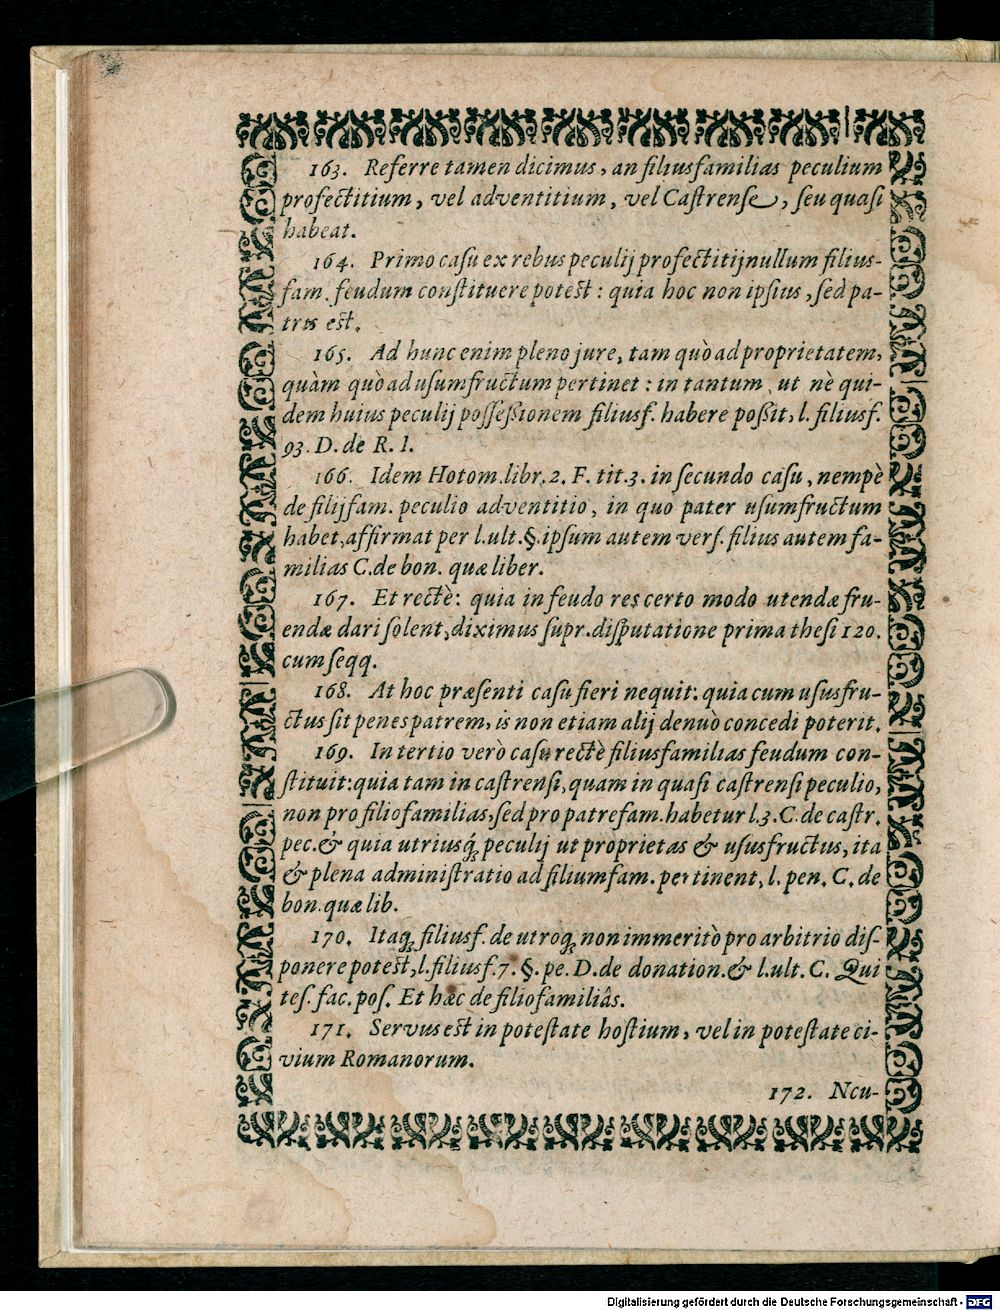 163. Referre tamen dicimus, an filiusfamilias peculium
profectitium, vel adventitium, vel Castrense, seu quasi
habeat.
164. Primo casu ex rebus peculij profectitij nullum filius-
fam. feudum constituere potest: quia hoc non ipsius, sed pa-
tris est.
165. Ad hunc enim pleno jure, tam quò ad proprietatem,
quàm quò ad usumfructum pertinet: in tantum, ut nè qui-
dem huius peculij possessionem filiusf. habere possit, l. filiusf.
93. D. de R. I.
166. Idem Hotom. libr. 2. F. tit. 3. in secundo casu, nempè
de filijfam. peculio adventitio, in quo pater usumfructum
habet, affirmat per l. ult. §. ipsum autem vers. filius autem fa-
milias C. de bon. quæ liber.
167. Et rectè: quia in feudo res certo modo utendæ fru-
endæ dari solent, diximus supr. disputatione prima thesi 120.
cum seqq.
168. At hoc præsenti casu fieri nequit: quia cum ususfru-
ctus sit penes patrem, is non etiam alij denuò concedi poterit.
169. In tertio verò casu rectè filiusfamilias feudum con-
stituit: quia tam in castrensi, quam in quasi castrensi peculio,
non pro filiofamilias, sed pro patrefam. habetur l. 3. C. de castr.
pec. & quia utriusq́; peculij ut proprietas & ususfructus, ita
& plena administratio ad filiumfam. pertinent, l. pen. C. de
bon. quæ lib.
170. Itaq; filiusf. de utroq; non immeritò pro arbitrio dis-
ponere potest, l. filiusf. 7. §. pe. D. de donation. & l. ult. C. Qui
tes. fac. pos. Et hæc de filiofamiliâs.
171. Servus est in potestate hostium, vel in potestate ci-
vium Romanorum.
172. Neu-
Digitalisierung gefördert durch die Deutsche Forschungsgemeinschaft - DFG